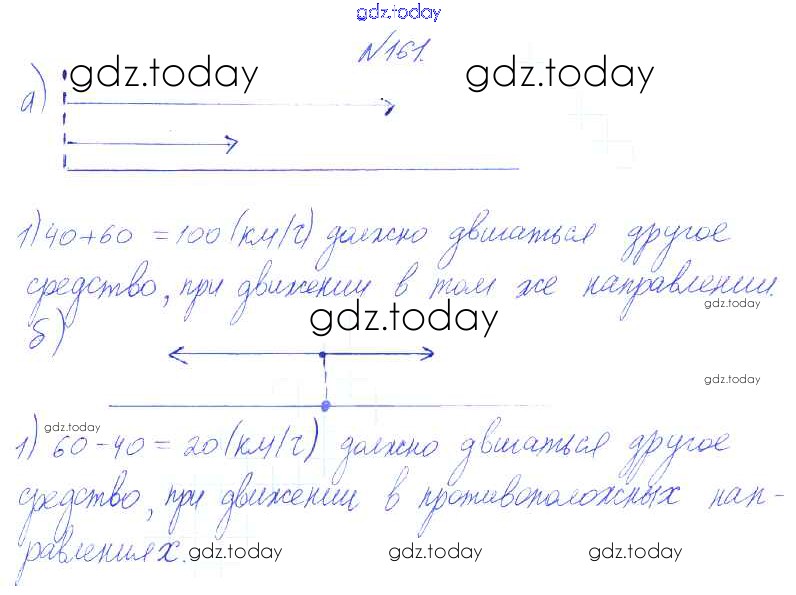 gdz.today
№161.
gdz.today gdz.today
а)
1) 40+60 = 100 (км/ч) должно двигаться другое
средство, при движении в том же направлении.
gdz.today
б)
gdz.today
gdz.today
gdz.today
1) 60-40 = 20 (км/ч) должно двигаться другое
средство, при движении в противоположных нап-
равлениях.
gdz.today gdz.today gdz.today